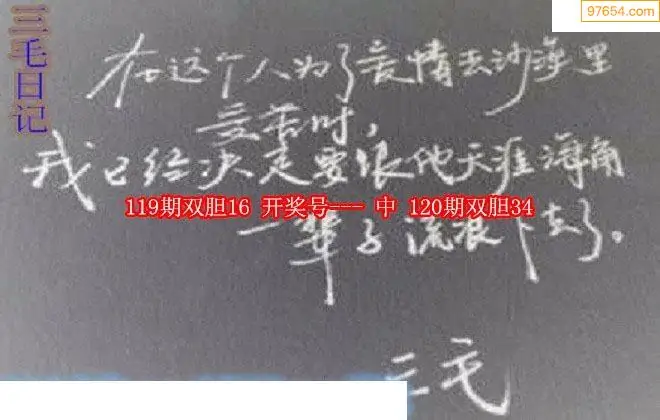 97654.com
三毛日记
在这个人为了爱情去沙漠里
受苦时，
我已经决定要跟他天涯海角
119期双胆16 开奖号--- 中 120期双胆34
一辈子流浪下去了。
三毛